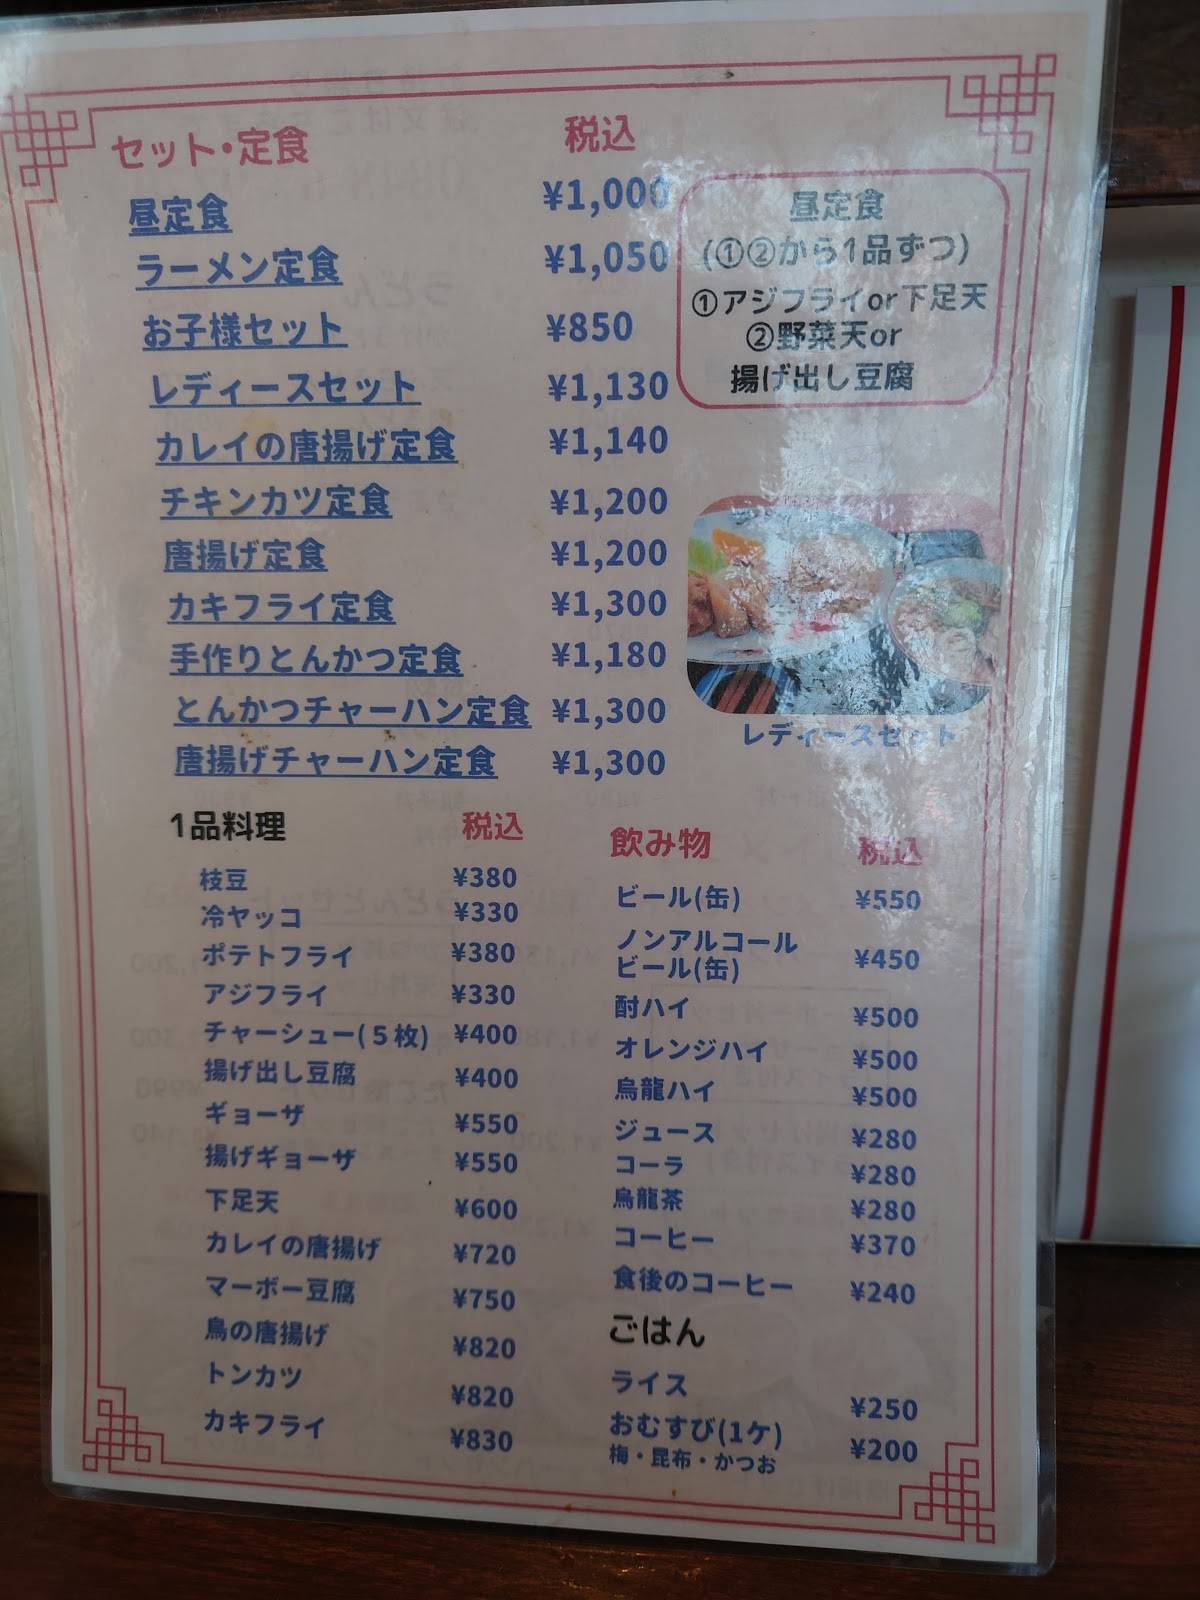 セット・定食 税込
昼定食 ¥1,000
ラーメン定食 ¥1,050
お子様セット ¥850
レディースセット ¥1,130
カレイの唐揚げ定食 ¥1,140
チキンカツ定食 ¥1,200
唐揚げ定食 ¥1,200
カキフライ定食 ¥1,300
手作りとんかつ定食 ¥1,180
とんかつチャーハン定食 ¥1,300
唐揚げチャーハン定食 ¥1,300
昼定食
(①②から1品ずつ)
①アジフライor下足天
②野菜天or
揚げ出し豆腐
レディースセット
1品料理 税込
枝豆 ¥380
冷ヤッコ ¥330
ポテトフライ ¥380
アジフライ ¥330
チャーシュー(５枚) ¥400
揚げ出し豆腐 ¥400
ギョーザ ¥550
揚げギョーザ ¥550
下足天 ¥600
カレイの唐揚げ ¥720
マーボー豆腐 ¥750
鳥の唐揚げ ¥820
トンカツ ¥820
カキフライ ¥830
飲み物 税込
ビール(缶) ¥550
ノンアルコール
ビール(缶) ¥450
酎ハイ ¥500
オレンジハイ ¥500
烏龍ハイ ¥500
ジュース ¥280
コーラ ¥280
烏龍茶 ¥280
コーヒー ¥370
食後のコーヒー ¥240
ごはん
ライス ¥250
おむすび(1ケ) ¥200
梅・昆布・かつお